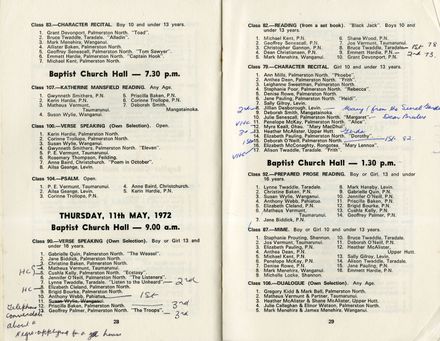 Class 83.—CHARACTER RECITAL. Boy 10 and under 13 years.
1. Grant Devonport, Palmerston North. "Toad".
2. Bruce Twaddle, Taradale. "Aladin".
3. Mark Menehira, Wanganui.
4. Allister Baken, Palmerston North.
5. Geoffrey Senescall, Palmerston North. "Tom Sawyer".
6. Emmett Hardie, Palmerston North. "Captain Hook".
7. Michael Kent, Palmerston North.
Baptist Church Hall — 7.30 p.m.
Class 107.—KATHERINE MANSFIELD READING. Any Age.
1. Gwynneth Smithers, P.N.
2. Kerin Hardie, P.N.
3. Matheus Vermunt,
Taumarunui.
5. Priscilla Baken, P.N.
6. Corinne Trollope, P.N.
7. Deborah Smith,
Mangatainoka.
Class 100.—VERSE SPEAKING (Own Selection). Open.
1. Kerin Hardie, Palmerston North.
2. Corinne Trollope, Palmerston North.
3. Susan Wylie, Wanganui.
4. Gwynneth Smithers, Palmerston North. "Eleven".
5. P. E. Vermunt, Taumarunui.
6. Rosemary Thompson, Feilding.
7. Anne Baird, Christchurch. "Poem in October".
8. Ailsa George, Levin.
Class 104.—PSALM. Open.
1. P. E. Vermunt, Taumarunui.
2. Ailsa George, Levin.
3. Corinne Trollope, P.N.
4. Anne Baird, Christchurch.
5. Kerin Hardie, P.N.
THURSDAY, 11th MAY, 1972
Baptist Church Hall — 9.00 a.m.
Class 90.—VERSE SPEAKING (Own Selection). Boy or Girl 13 and under 16 years.
1. Gabrielle Quin, Palmerston North. "The Weasel".
2. Jena Biddick, Palmerston North.
3. Christine Baken, Palmerston North.
4. Matheus Vermunt, Taumarunui.
5. Cushla Kelly, Palmerston North. "Ecstasy".
6. Jennifer O'Neil, Palmerston North. "The Listeners".
7. Lynne Twaddle, Taradale. "Listen to the Unheard" — 2nd
8. Elizabeth Cleland, Palmerston North.
9. Brigid Bourke, Palmerston North.
10. Anthony Webb, Patiatua.
11. Susan Wylie, Wanganui. 1st
12. Priscilla Baken, Palmerston North. — 3rd
13. Geoffrey Palmer, Palmerston North. "The Troops". — 3rd
28
Class 82.—READING (from a set book). "Black Jack". Boys 10 and under 13 years.
1. Michael Kent, P.N.
2. Geoffrey Senescall, P.N.
3. Christopher Gannon, P.N.
4. Dean Christensen, P.N.
5. Mark Menehira, Wanganui.
6. Shane Wood, P.N.
7. Jos Vermunt, Taumarunui.
8. Bruce Twaddle, Taradale. — 1st 78
9. Emmett Hardie, P.N. — 2nd 73
10. Grant Devonport, P.N.
Class 79.—CHARACTER RECITAL. Girl 10 and under 13 years.
1. Ann Mills, Palmerston North. "Phoebe".
2. Anthea Dean, Palmerston North. "Frith".
3. Leighanne Smith, Palmerston North.
4. Stephanie Poor, Palmerston North. "Rebecca".
5. Denise Rowe, Palmerston North.
6. Jane Pauling, Palmerston North. "Heidi".
7. Sally Gilroy, Levin.
8. Jillian Dasborough, Levin.
9. Deborah Smith, Mangatainoka.
10. Julie Senescall, Palmerston North. "Margaret"
11. Penelope McKay, Palmerston North. "Alice"
12. Myra Keall, Ohau. "Mary Lennox"
13. Heather McAlister, Upper Hutt.
14. Elizabeth Pauling, Palmerston North. "Dorothy"
15. Deborah O'Neil, Palmerston North. 1st 82
16. Elizabeth McConaghy, Rongotea. "Mary Lennox"
17. Alison Twaddle, Taradale.
Baptist Church Hall — 1.30 p.m.
Class 92.—PREPARED PROSE READING. Boy or Girl, 13 and under 16 years.
1. Lynne Twaddle, Taradale.
2. Christine Baken, P.N.
3. Susan Wylie, Wanganui.
4. Anthony Webb, Pahiatua.
5. Elizabeth Cleland, P.N.
6. Matheus Vermunt,
Taumarunui.
7. Jena Biddick, P.N.
8. Mark Hanlly, Levin.
9. Gabrielle Quin, P.N.
10. Jennifer O'Neil, P.N.
11. Priscilla Baken, P.N.
12. Brigid Bourke, P.N.
13. Cushla Kelly, P.N.
14. Geoffrey Palmer, P.N.
Class 87.—MIME. Boy or Girl 10 and under 13 years.
1. Staphania Prouting, Shannon.
2. Jos Vermunt, Taumarunui.
3. Elizabeth Pauling, P.N.
4. Anthea Dean, P.N.
5. Michael Kent, P.N.
6. Penelope McKay, P.N.
7. Denise Rowe, P.N.
8. Mark Menehira, Wanganui.
9. Michelle Locke, Shannon.
10. Bruce Twaddle, Taradale.
11. Deborah O'Neil, P.N.
12. Heather McAlister,
Upper Hutt.
13. Sally Gilroy, Levin.
14. Alison Twaddle, Taradale.
15. Jane Pauling, P.N.
16. Emmett Hardie, P.N.
Class 106.—DUALOGUE (Own Selection). Any Age.
1. Gregory Kidd & Mark Bell, Palmerston North.
2. Matheus Vermunt & Partner, Taumarunui.
3. Heather McAlister & Shane McAlister, Upper Hutt.
4. Julie Callaghan & Elinor Watson, Palmerston North.
5. Mark Menehira & James Menehira, Wanganui.
29